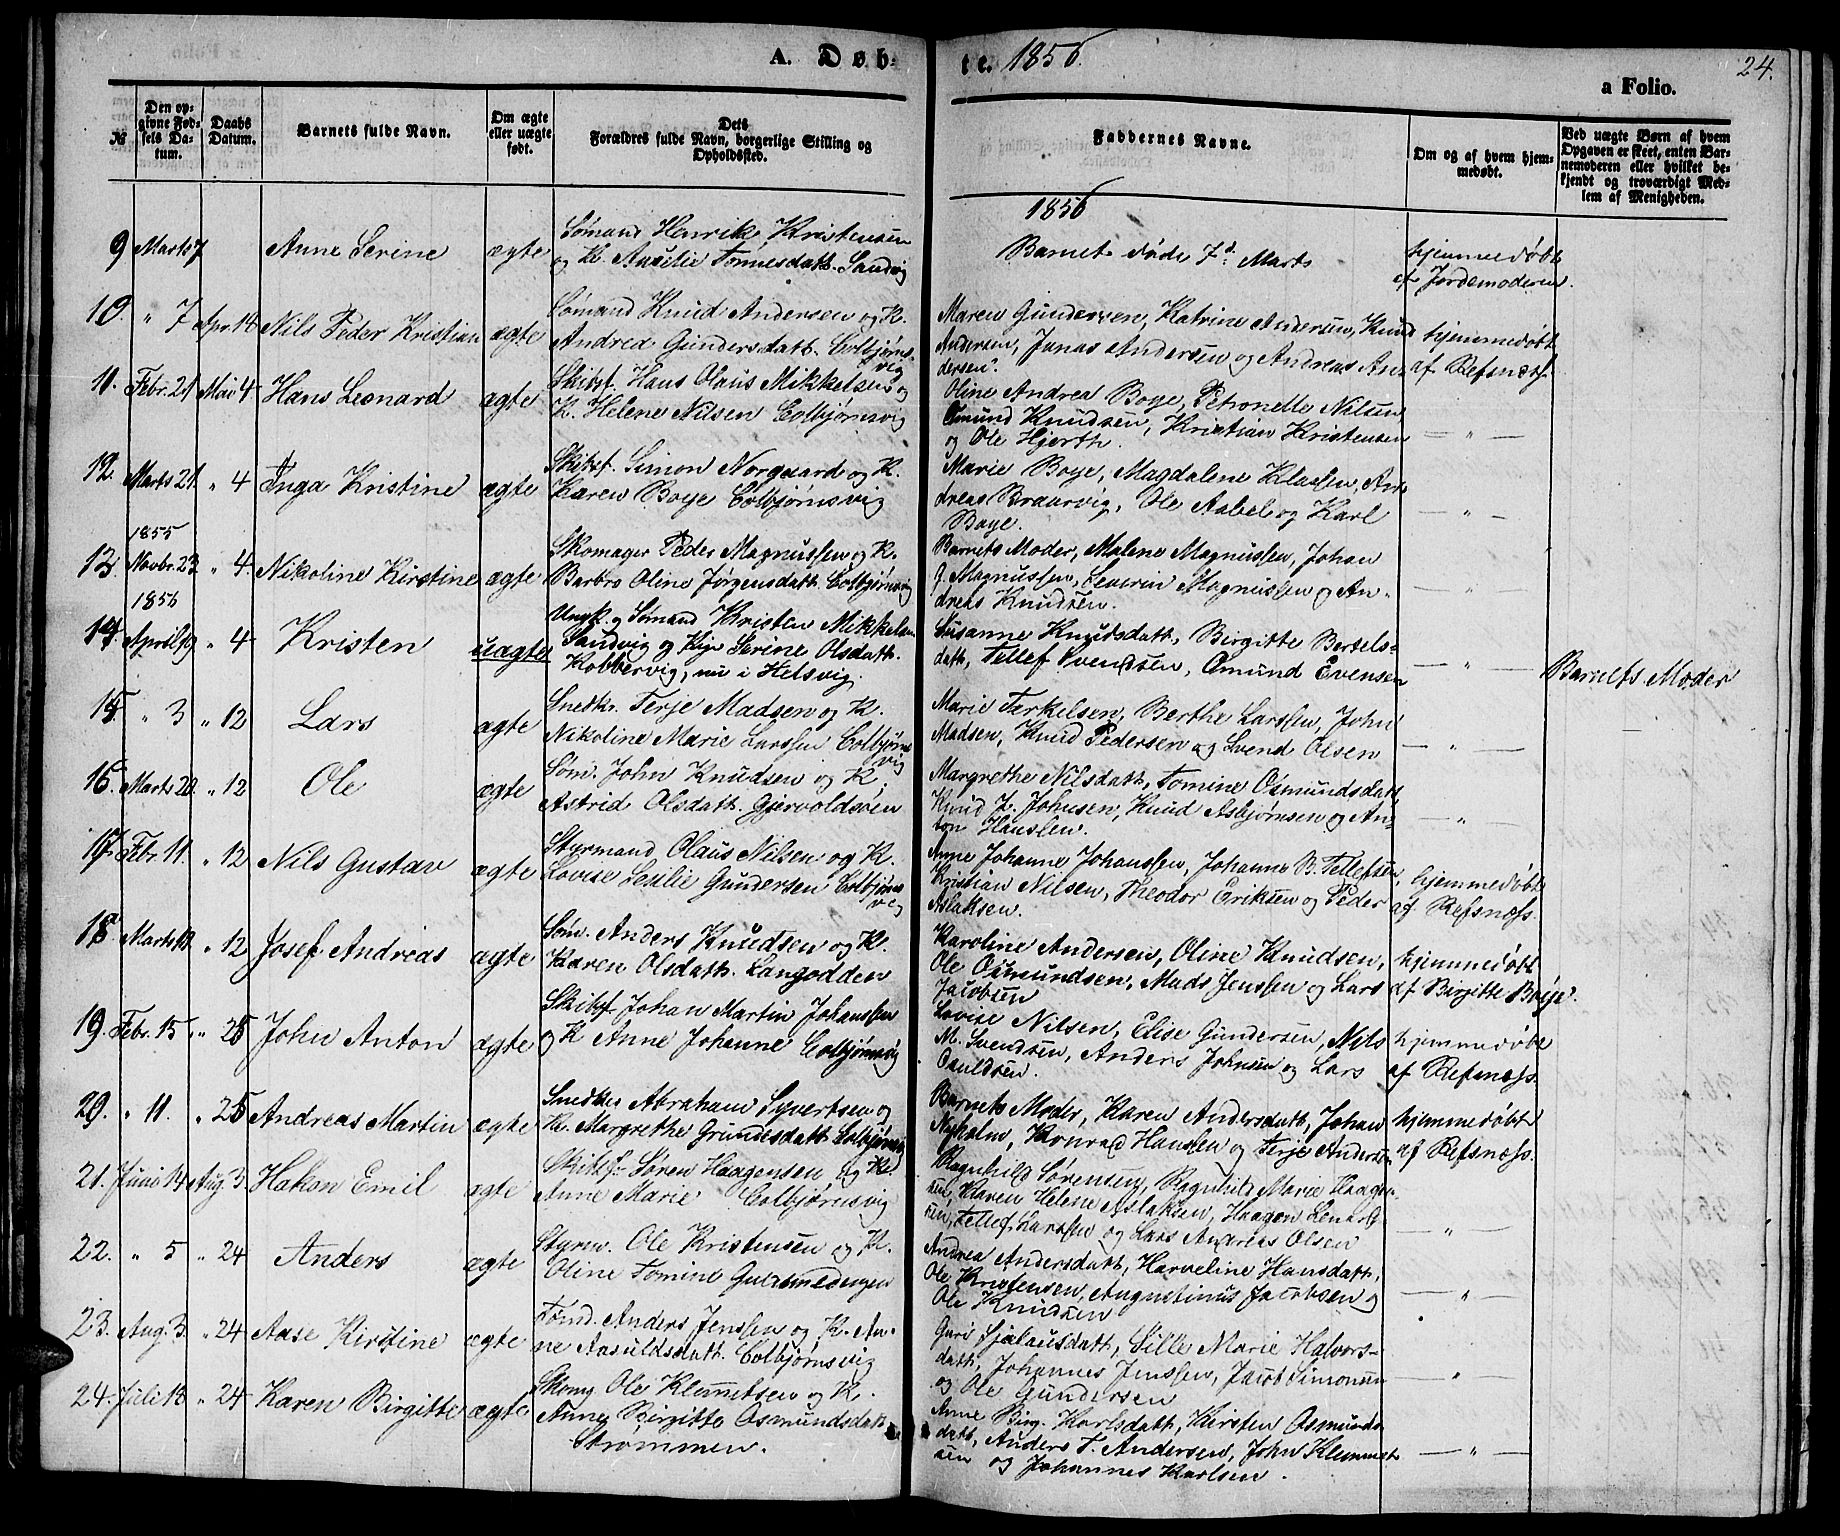 A. Døb-
te. 1856.
24.
a Folio.
№
Den op-
givne Fød-
sels Da-
tum.
Daabs
Datum.
Barnets fulde Navn.
Om ægte
eller uægte
født.
Dets
Forældres fulde Navn, borgerlige Stilling og
Opholdssted.
Faddernes Navne.
Om og af hvem hjem-
medøbt.
Ved uægte Børn af hvem
Opgaven er skeet, enten Bar-
nemoderen eller hvilket be-
kjendt og troværdigt Med-
lem af Menigheden.
1856
9 Marts 7 Anne Serine ægte
Sømand Henrik Kristensen
og K. Aurelie Tønnesdatt. Sandvig
Barnet døde 7d Marts
hjemmedøbt
af Jordemoderen.
10. " 7 Apr. 14 Nils Peder Kristian ægte
Sømand Knud Andersen og K.
Andrea Gundersdatt. Colbjørns-
vig
Maren Gundersen, Katrine Andersen, Knud
Andersen, Jonas Andersen og Andreas An-
dersen.
hjemmedøbt
af Refsnæss.
11. Febr. 21 Mai 4 Hans Leonard ægte
Skibsf. Hans Olaus Mikkelsen og
K. Helene Nilsen Colbjørnsvig
Oline Andrea Boye, Petronelle Nilsen,
Osmund Knudsen, Kristian Kristensen
og Ole Hjorth.
— " —
12. Marts 21 " 4 Inga Kristine ægte
Skibsf. Simon Norgaard og K.
Karen Boye Colbjørnsvig
Marie Boye, Magdalene Klassen, An-
dreas Braarvig, Ole Aabel og Karl
Boye.
— " —
1855
13. Novbr. 23 " 4. Nikoline Kirstine ægte
Skomager Peder Magnussen og K.
Barbro Oline Jørgensdatt. Colbjørnsvig
Barnets Moder, Malene Magnussen, Johan
G. Magnussen, Severin Magnussen og An-
dreas Knudsen.
— " —
1856
14. April 9 " 4 Kristen uægte
Ungk. og Sømand Kristen Mikkelsen
Sandvig og Pige Serine Olsdatt.
Kobbervig, nu i Helsvig.
Susanne Knudsdatt, Birgitte Bertels-
datt, Tellef Svendsen, Omund Evensen
— " —
Barnets Moder
15. " 3 " 12 Lars ægte
Snedkr. Terje Madsen og K.
Nikoline Marie Larssen Colbjørns
vig
Marie Terkelsen, Berthe Larssen, John
Madsen, Knud Pedersen og Svend Olsen
— " —
16. Marts 20 " 12 Ole ægte
Søm. John Knudsen og K.
Astrid Olsdatt. Gjervoldsøen
Margrethe Nilsdatt, Tomine Osmundsdatt,
Knud L. Johnsen, Knud Asbjørnsen og An-
ton Hanssen.
— " —
17. Febr. 11. " 12 Nils Gustav ægte
Styrmand Olaus Nilsen og K.
Lovise Gundersen Colbjørns
vig
Anne Johanne Johanssen, Johanne B. Tellefsen,
Kristian Nilsen, Theodor Eriksen og Peder
Aslaksen.
hjemmedøbt
af Refsnæss.
18. Marts " 12 Josef Andreas ægte
Søm. Anders Knudsen og K.
Karen Olsdatt. Langodden
Karoline Andersen, Oline Knudsen,
Ole Osmundsen, Mads Jenssen og Lars
Jacobsen
hjemmedøbt
af Birgitte Boije.
19. Febr. 15 " 25 John Anton ægte
Skibsf. Johan Martin Johanssen
og K Anne Johanne Colbjørnsvig
Lovise Nilsen, Elise Gundersen, Nils
M. Svendsen, Anders Johnsen og Lars
Osuldsen.
hjemmedøbt
af Refsnæss.
20. " 11. " 25 Andreas Martin ægte
Snedker Abraham Syvertsen og
K. Margrethe Grundesdatt. Colbjørnsvig
Barnets Moder, Karen Andersdatt, Johan
Nyholm, Konrad Hanssen og Terje Andersen
hjemmedøbt
af Refsnæss.
21. Juni 14 Aug 3. Hakon Emil ægte
Skibsf. Søren Haagensen og K.
Anne Marie Colbjørnsvig
Ragnhild Sørensen, Ragnhild Marie Haagen-
sen, Karen Helene Aslaksen, Haagen Lenard-
sen, Tellef Larssen og Lars Andreas Olsen
— " —
22. " 5 " 24 Anders ægte
Styrm. Ole Kristensen og K.
Oline Tomine Gulsmedengen
Andrea Andersdatt, Harveline Hansdatt,
Ole Kristensen, Augustinus Jacobsen og
Ole Knudsen
— " —
23. Aug. 3. " 24 Aase Kirstine ægte
Tømd. Anders Jenssen og K. An-
ne Aasuldsdatt. Colbjørnsvig
Guri Sjølausdatt, Sille Marie Halvors-
datt, Johannes Jenssen, Jacob Simonsen
og Ole Gundersen
— " —
24. Juli 13 " 24 Karen Birgitte ægte
Skomg. Ole Klemetsen og K.
Anne Birgitte Osmundsdatt
Strømmen.
Anne Birg. Karlsdatt, Kirsten Osmunds-
datt, Anders T. Andersen, John Klemmet-
sen og Johannes Karlsen.
— " —